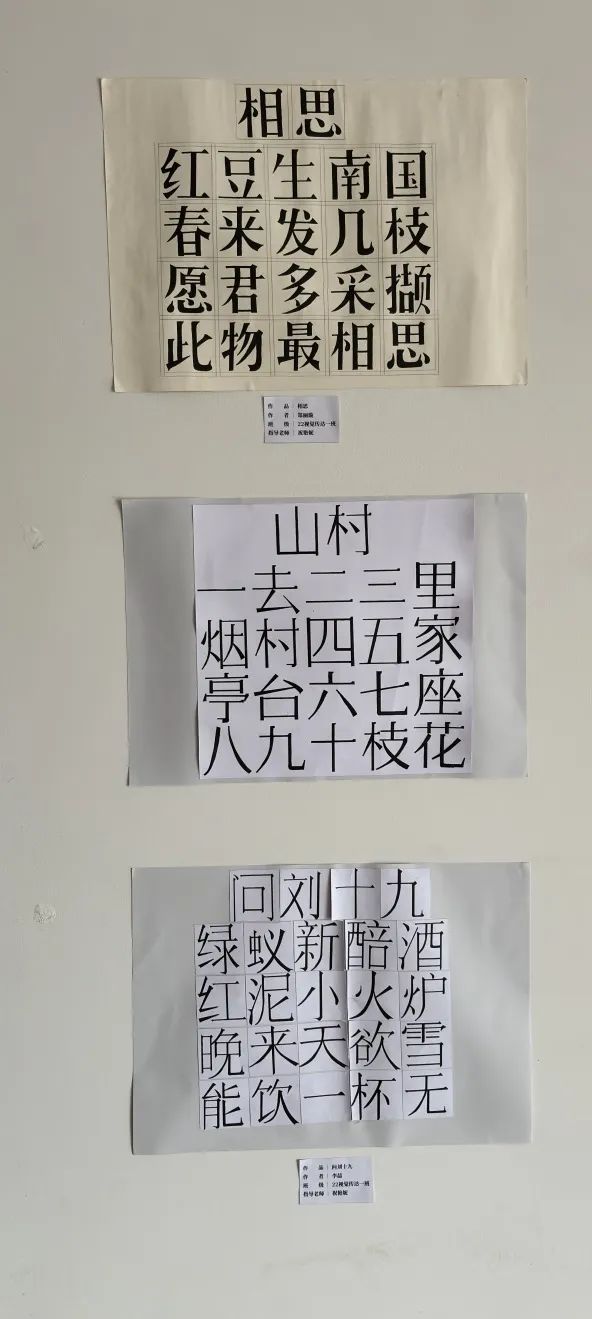 相思
红豆生南国
春来发几枝
愿君多采撷
此物最相思
作 品 | 相思
作 者 |
班 级 | 22视觉传达一班
指导老师 |
山村
一去二三里
烟村四五家
亭台六七座
八九十枝花
问刘十九
绿蚁新醅酒
红泥小火炉
晚来天欲雪
能饮一杯无
作 品 | 问刘十九
作 者 |
班 级 | 22视觉传达一班
指导老师 |